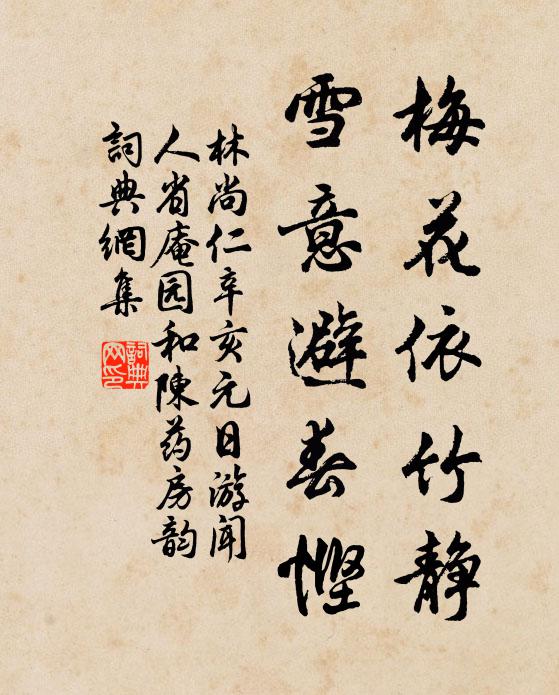 梅花依竹静
雪意避春慳
林尚仁辛亥元日游闻
人省庵园和陳药房韵
詞典網集
詞典网印